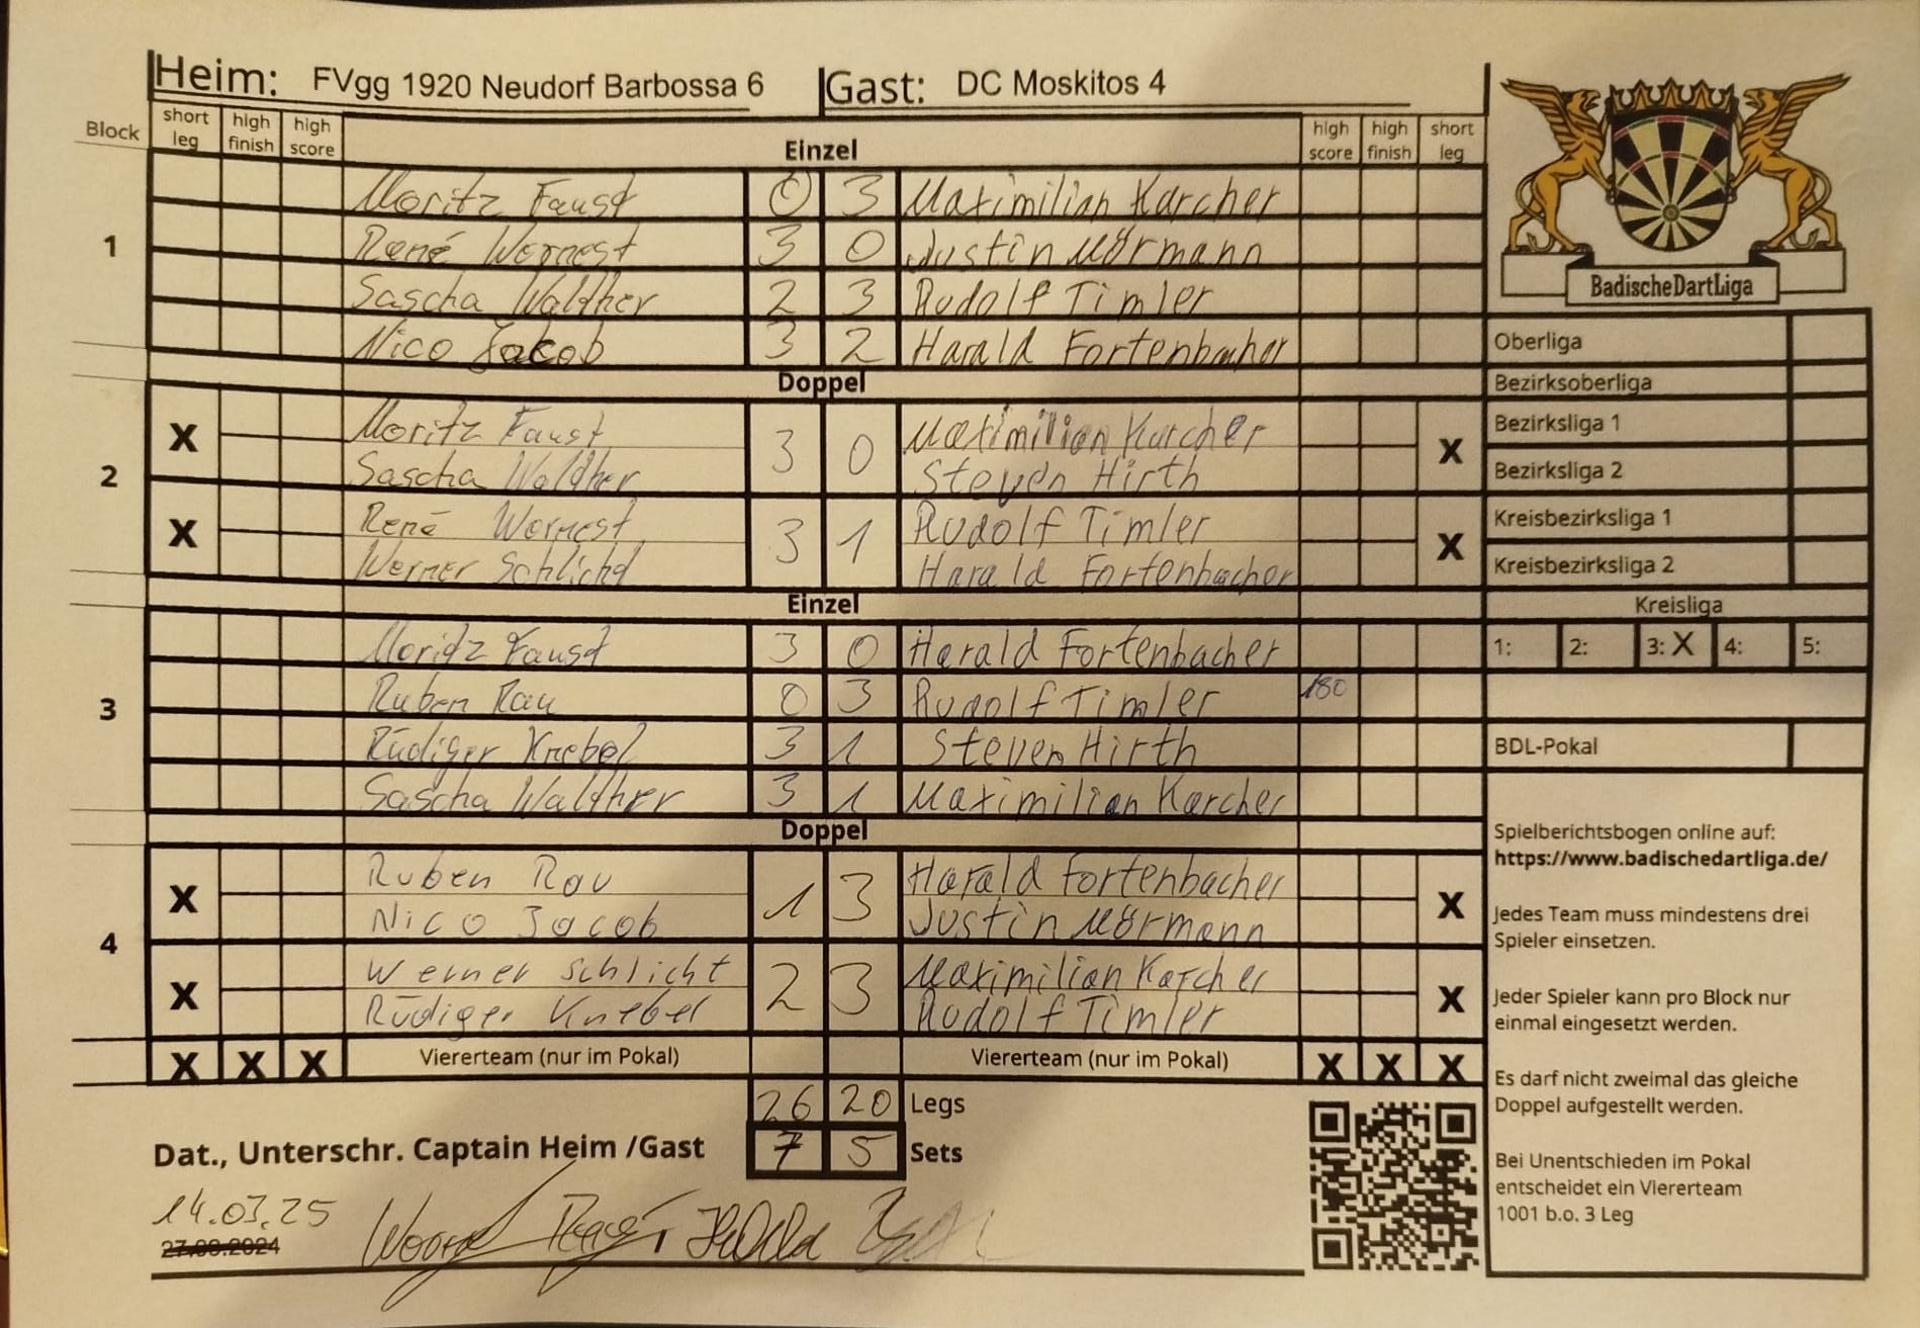 Heim: FVgg 1920 Neudorf Barbossa 6 Gast: DC Moskitos 4
Block short leg high finish high score Einzel high score high finish short leg
1
Moritz Faust 0 3 Maximilian Karcher
René 3 0 Justin Mörmann
Sascha Walther 2 3 Rudolf Timler
Nico Jacob 3 2 Harald Fortenbacher
Doppel
2
X Moritz Faust 3 0 Maximilian Karcher X
Sascha Walther Steven Hirth
X René 3 1 Rudolf Timler X
Werner Schlicht Harald Fortenbacher
Einzel
3
Moritz Faust 3 0 Harald Fortenbacher
Ruben Rau 0 3 Rudolf Timler 180
Rüdiger Knebel 3 1 Steven Hirth
Sascha Walther 3 1 Maximilian Karcher
Doppel
4
X Ruben Rau 1 3 Harald Fortenbacher X
Nico Jacob Justin Mörmann
X Werner Schlicht 2 3 Maximilian Karcher X
Rüdiger Knebel Rudolf Timler
X X X Viererteam (nur im Pokal) Viererteam (nur im Pokal) X X X
26 20 Legs
7 5 Sets
Dat., Unterschr. Captain Heim /Gast
14.03.25
27.09.2024
BadischeDartLiga
Oberliga
Bezirksoberliga
Bezirksliga 1
Bezirksliga 2
Kreisbezirksliga 1
Kreisbezirksliga 2
Kreisliga
1: 2: 3: X 4: 5:
BDL-Pokal
Spielberichtsbogen online auf:
https://www.badischedartliga.de/
Jedes Team muss mindestens drei
Spieler einsetzen.
Jeder Spieler kann pro Block nur
einmal eingesetzt werden.
Es darf nicht zweimal das gleiche
Doppel aufgestellt werden.
Bei Unentschieden im Pokal
entscheidet ein Viererteam
1001 b.o. 3 Leg